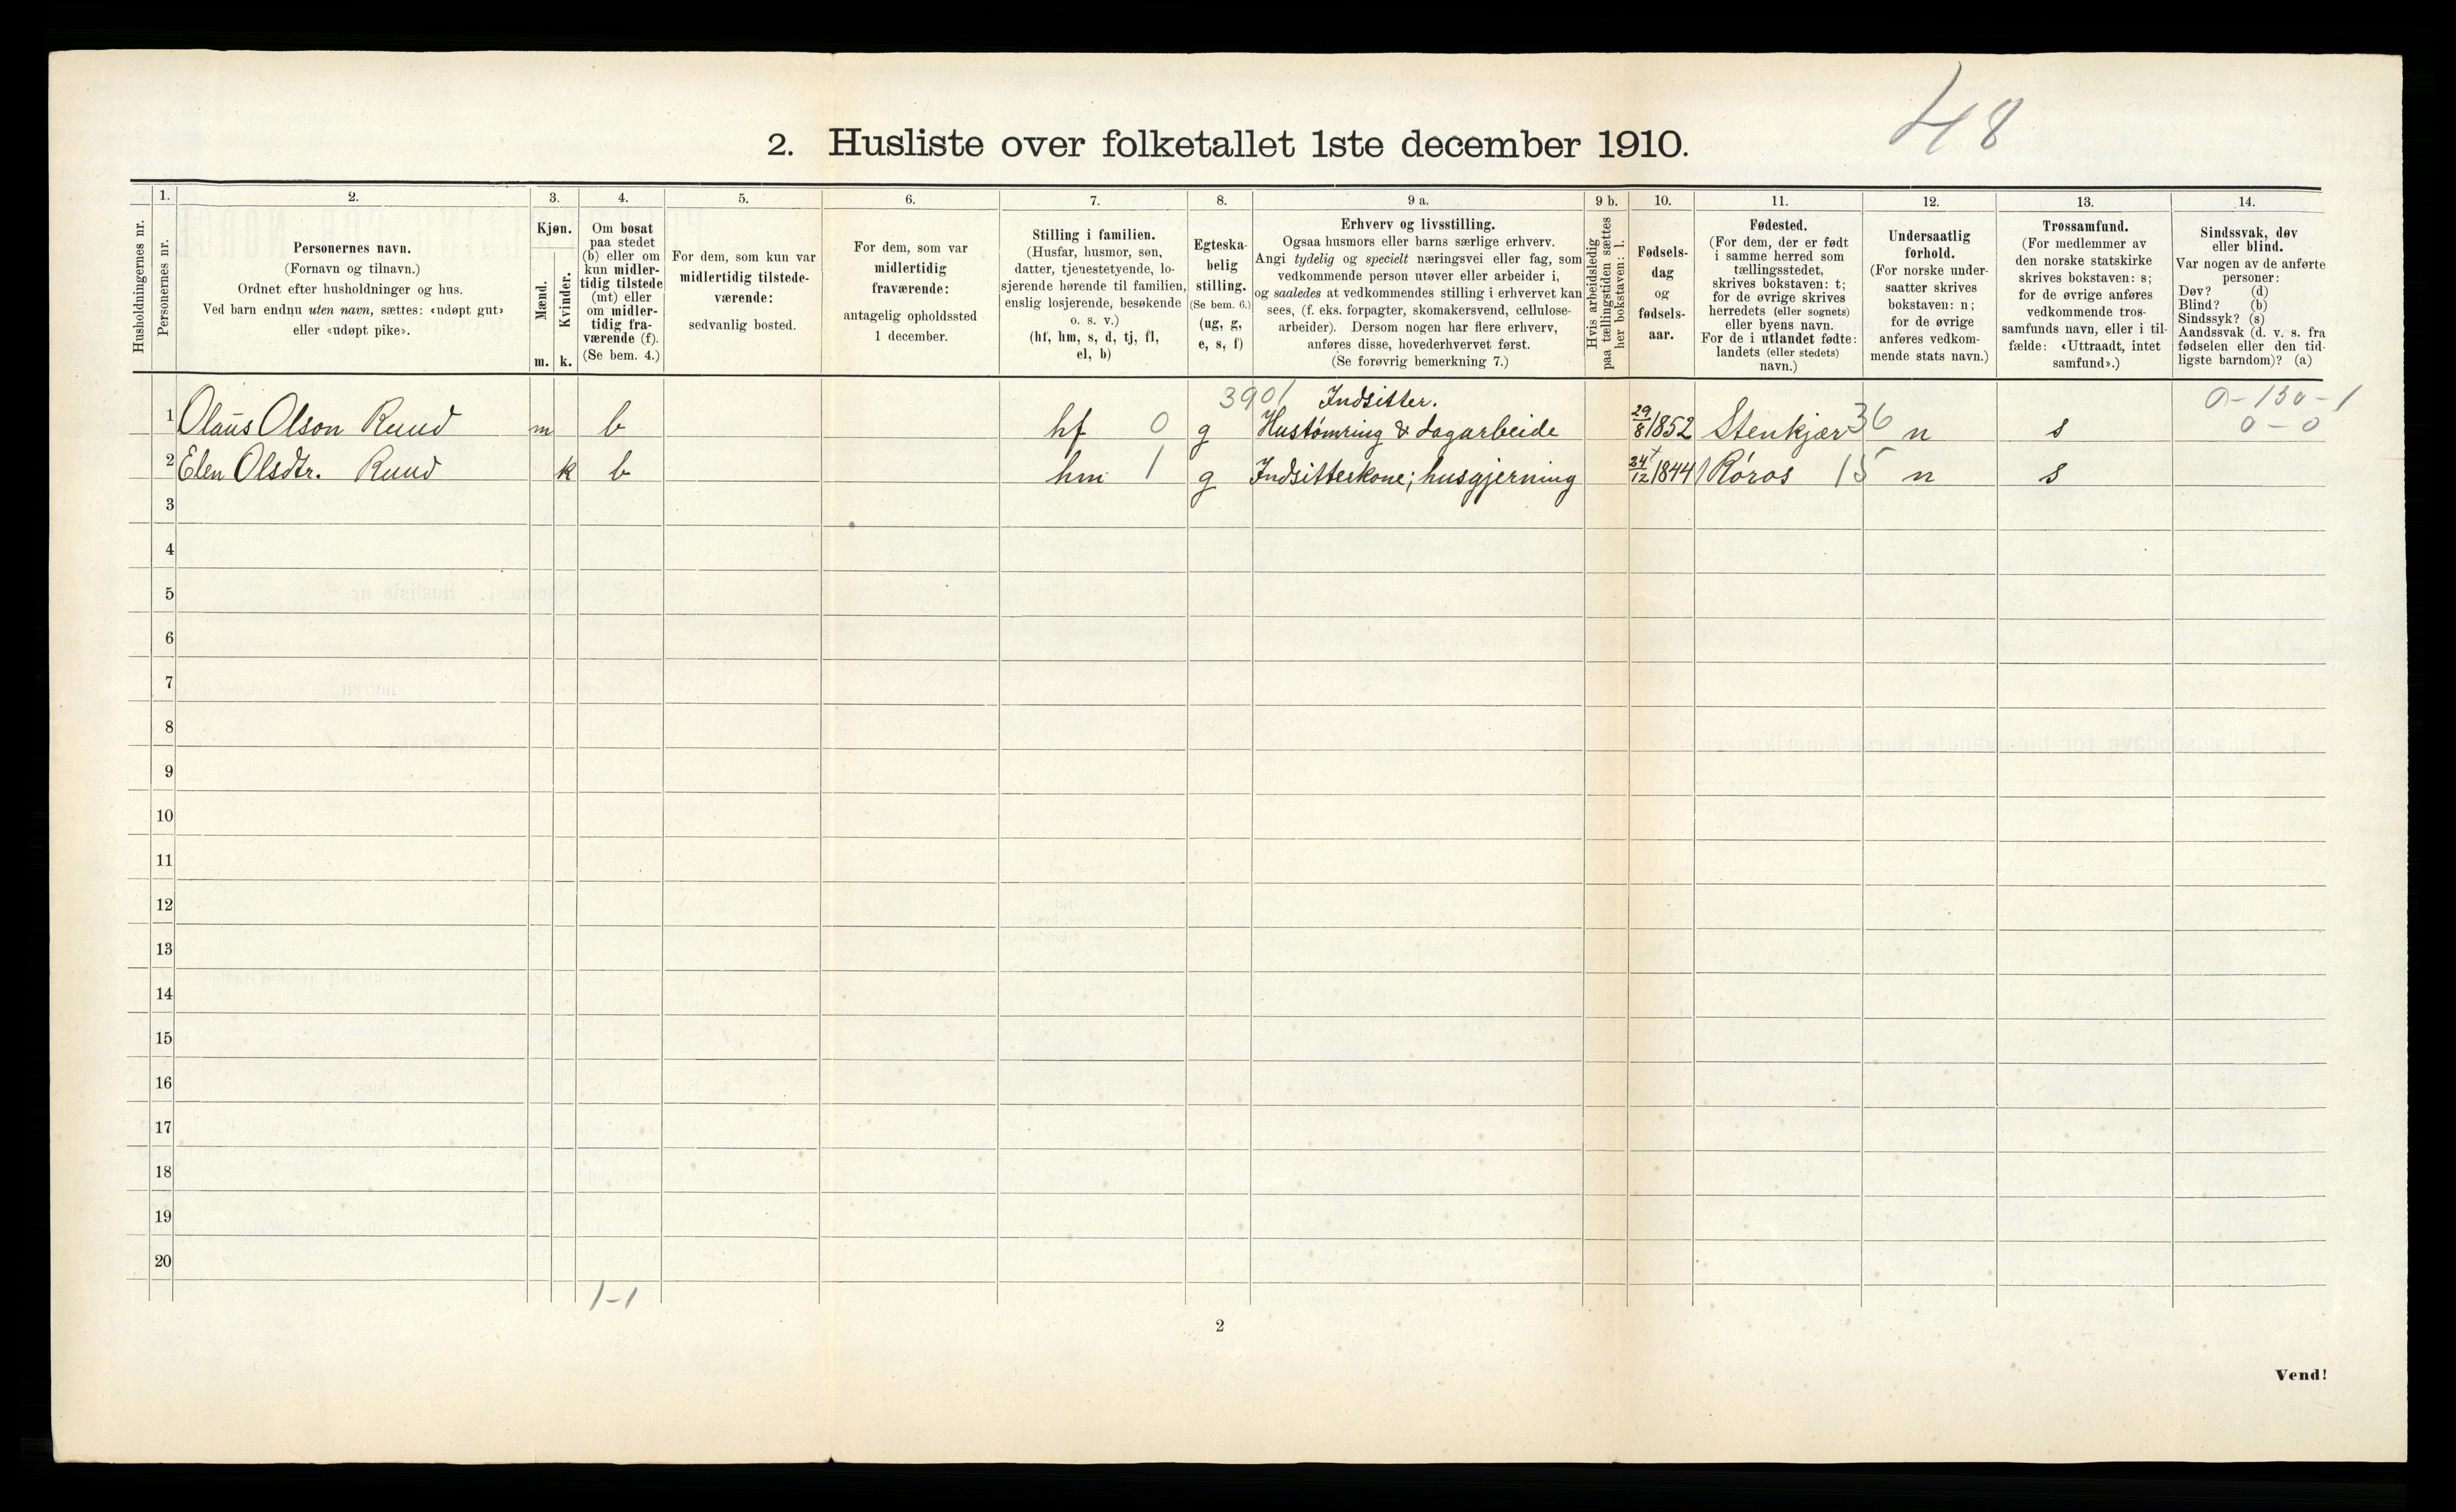 48
2. Husliste over folketallet 1ste december 1910.
Husholdningernes nr.
1.
Personernes nr.
2.
Personernes navn.
(Fornavn og tilnavn.)
Ordnet efter husholdninger og hus.
Ved barn endnu uten navn, sættes: «udøpt gut»
eller «udøpt pike».
3.
Kjøn.
Mænd.
m.
Kvinder.
k.
4.
Om bosat
paa stedet
(b) eller om
kun midler-
tidig tilstede
(mt) eller
om midler-
tidig fra-
værende (f).
(Se bem. 4.)
5.
For dem, som kun var
midlertidig tilstede-
værende:
sedvanlig bosted.
6.
For dem, som var
midlertidig
fraværende:
antagelig opholdssted
1 december.
7.
Stilling i familien.
(Husfar, husmor, søn,
datter, tjenestetyende, lo-
sjerende hørende til familien,
enslig losjerende, besøkende
o. s. v.)
(hf, hm, s, d, tj, fl,
el, b)
8.
Egteska-
belig
stilling.
(Se bem. 6.)
(ug, g,
e, s, f)
9 a.
Erhverv og livsstilling.
Ogsaa husmors eller barns særlige erhverv.
Angi tydelig og specielt næringsvei eller fag, som
vedkommende person utøver eller arbeider i,
og saaledes at vedkommendes stilling i erhvervet kan
sees, (f. eks. forpagter, skomakersvend, cellulose-
arbeider). Dersom nogen har flere erhverv,
anføres disse, hovederhvervet først.
(Se forøvrig bemerkning 7.)
9 b.
Hvis arbeidsledig
paa tællingstiden sættes
her bokstaven: l.
10.
Fødsels-
dag
og
fødsels-
aar.
11.
Fødested.
(For dem, der er født
i samme herred som
tællingsstedet,
skrives bokstaven: t;
for de øvrige skrives
herredets (eller sognets)
eller byens navn.
For de i utlandet fødte:
landets (eller stedets)
navn.)
12.
Undersaatlig
forhold.
(For norske under-
saatter skrives
bokstaven: n;
for de øvrige
anføres vedkom-
mende stats navn.)
13.
Trossamfund.
(For medlemmer av
den norske statskirke
skrives bokstaven: s;
for de øvrige anføres
vedkommende tros-
samfunds navn, eller i til-
fælde: «Uttraadt, intet
samfund».)
14.
Sindssvak, døv
eller blind.
Var nogen av de anførte
personer:
Døv? (d)
Blind? (b)
Sindssyk? (s)
Aandssvak (d. v. s. fra
fødselen eller den tid-
ligste barndom)? (a)
3901 Indsitter. 0-130-1
1 Olaus Olson Ruud m b hf 0 g Hustömring & dagarbeide 29/8 1852 Stenkjær 36 n s 0-0
2 Elen Olsdtr. Ruud k b hm 1 g Indsitterkone; husgjerning 24/12 1844 Röros 15 n s
3
4
5
6
7
8
9
10
11
12
13
14
15
16
17
18
19
20
1-1
2
Vend!